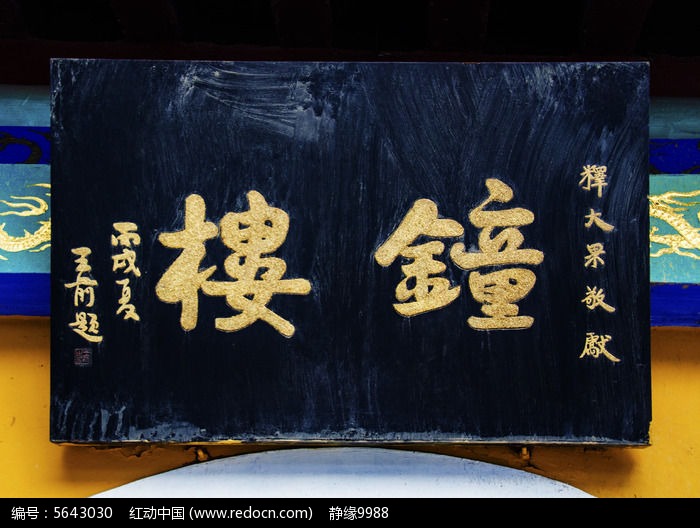 釋大果敬獻
鐘樓
丙戌夏
王前題
编号：5643030 红动中国 (www.redocn.com) 静缘9988